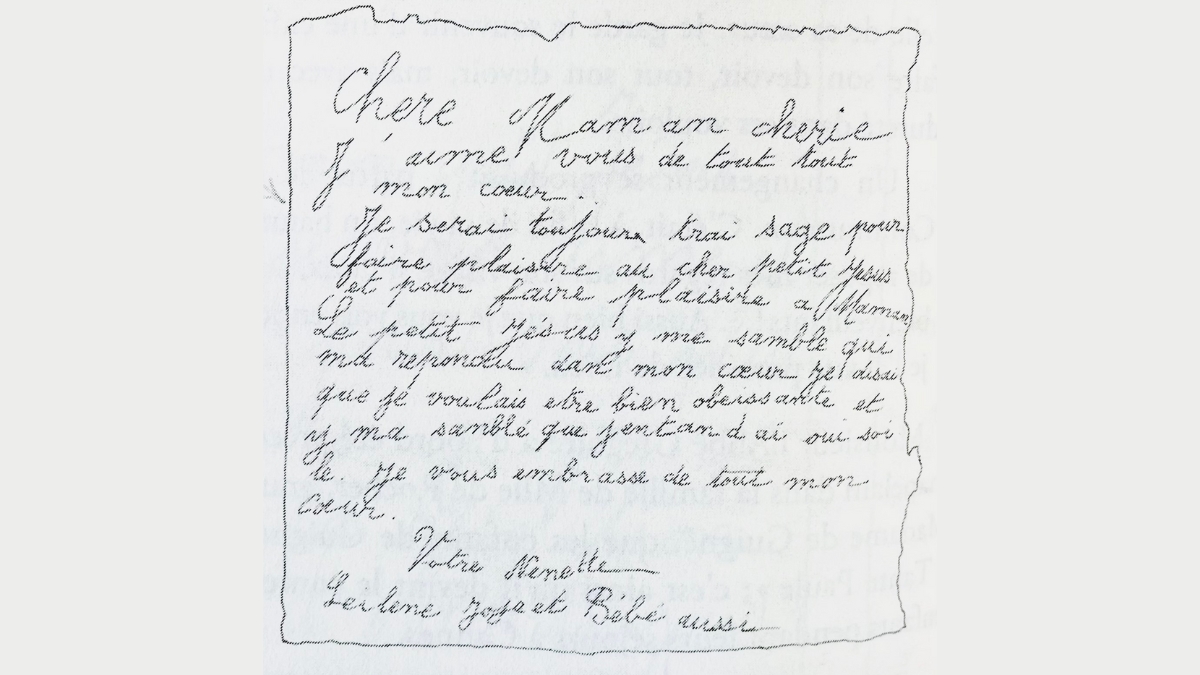 Chere Maman cherie
J'aime vous de tout tout
mon cœur.
Je serai toujours trai sage pour
faire plaisire au cher petit Jesus
et pour faire plaisire a Maman
Le petit Jesus y me samble qui
ma repondu dant mon cœur je disai
que je voulais etre bien obeissante et
y ma samblé que j'entandai oui soi
le je vous embrasse de tout mon
cœur.
Votre Nenette
et Bébé aussi